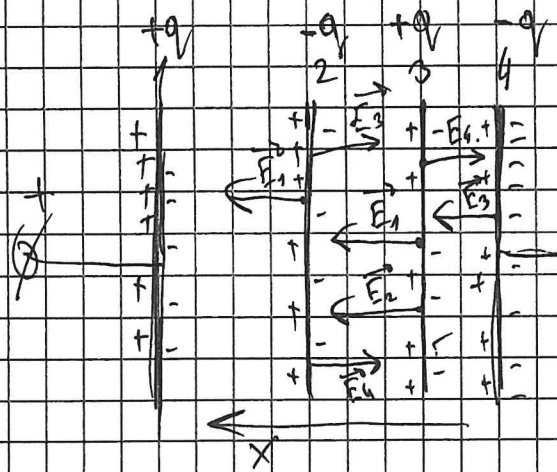 +q -q +q -q
1 2 3 4
E₃
E₁
E₄
E₃
E₁
E₂
E₄
X